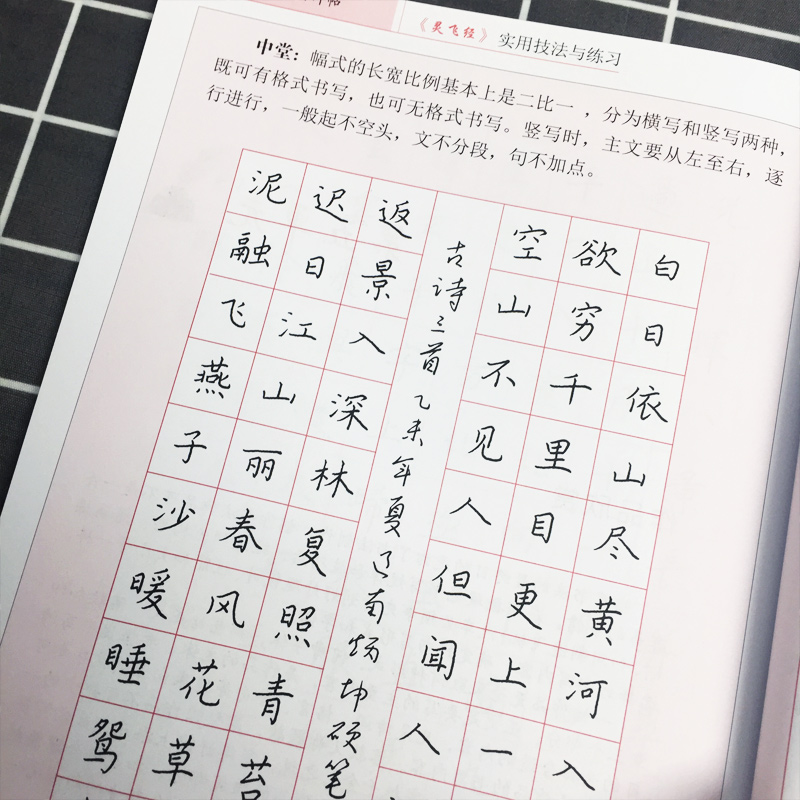 《灵飞经》实用技法与练习
中堂：幅式的长宽比例基本上是二比一，分为横写和竖写两种，
既可有格式书写，也可无格式书写。竖写时，主文要从左至右，逐
行进行，一般起不空头，文不分段，句不加点。
白日依山尽黄河入
欲穷千里目更上一
空山不见人但闻人
古诗三首乙未年夏辽南炀坤硬笔
返景入深林复照青苔
迟日江山丽春风花草
泥融飞燕子沙暖睡鸳